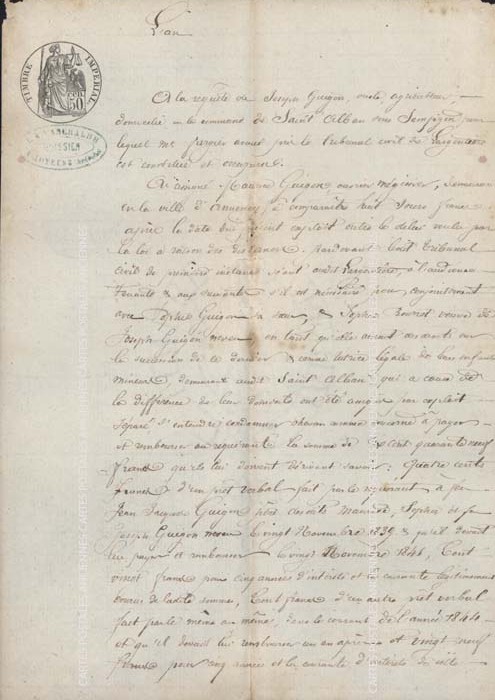 L'an
TIMBRE IMPÉRIAL
50 C.
A la requête de Joseph Guigon, oncle agriculteur,
domicilié en la commune de Saint Alban sous Sampzon, pour
lequel Me avoué près le tribunal civil de Largentière
est constitué et occupera.
Guigon, ouvrier mégissier, demeurant
en la ville d'Annonay, à comparaître huit jours francs
après la date du présent exploit outre le délai voulu par
la loi à raison des distances, pardevant ledit tribunal
civil de première instance séant audit Largentière, à l'audience
tenante & aux suivantes s'il est nécessaire pour, conjointement
avec Sophie Guigon sa sœur, & Sophie veuve de
Joseph Guigon neveu, en tant qu'elle aurait des droits sur
la succession de ce dernier & comme tutrice légale de ses enfants
mineurs, demeurant audit Saint Alban qui à cause de
la différence de leur domicile ont été assignés par exploit
séparé s'entendre condamner chacun comme à payer
et rembourser au requérant la somme de sept cent quarante neuf
francs qu'ils lui doivent savoir : Quatre cents
francs d'un prêt verbal fait par le requérant à feu
Jean Jacques Guigon père desdits Sophie et feu
Joseph Guigon vingt Novembre 1839 & qu'il devait
lui payer et rembourser le vingt Novembre 1846, Cent
vingt francs pour cinq années d'intérêts et la courante légitimement
de ladite somme, Cent francs d'un autre prêt verbal
fait par le même au même, dans le courant de l'année 1844
et qu'il devait lui rembourser un an après et vingt neuf
francs pour cinq années et la courante d'intérêts de cette